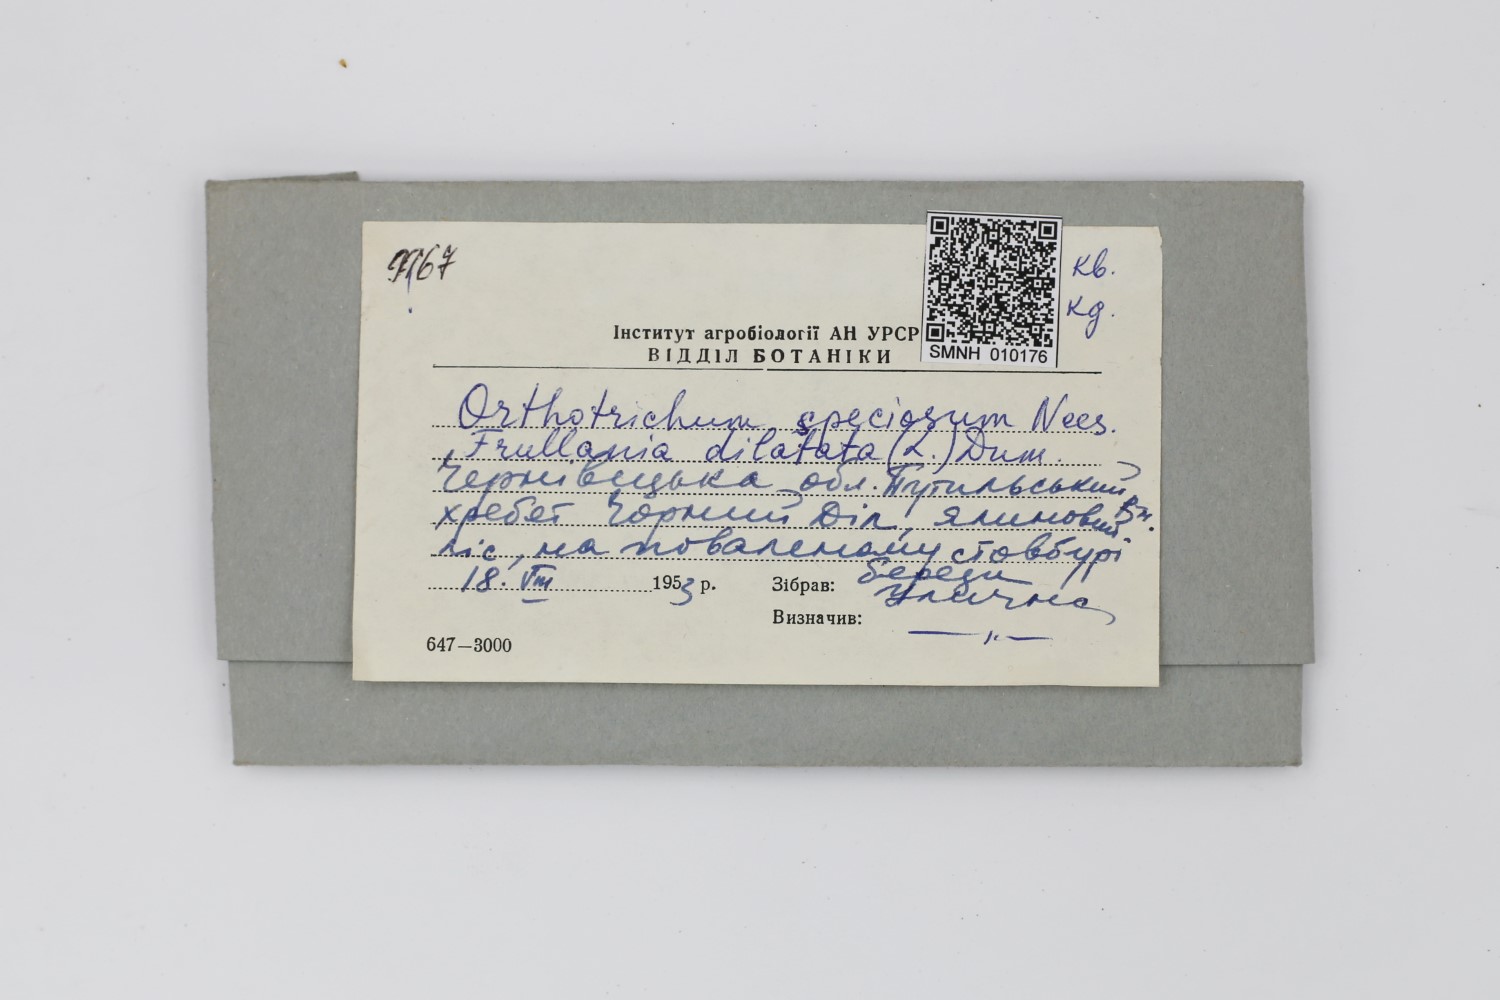 767
кв.
кд.
SMNH 010176
Інститут агробіології АН УРСР
ВІДДІЛ БОТАНІКИ
Orthotrichum speciosum Nees.
Frullania dilatata (L.) Dum.
Чернівецька обл. Путильський
хребет Чорний Діл, ялиновий
ліс, на поваленому стовбурі
берези
18. VIII 1953 р. Зібрав: Улична
Визначив: —"—
647—3000